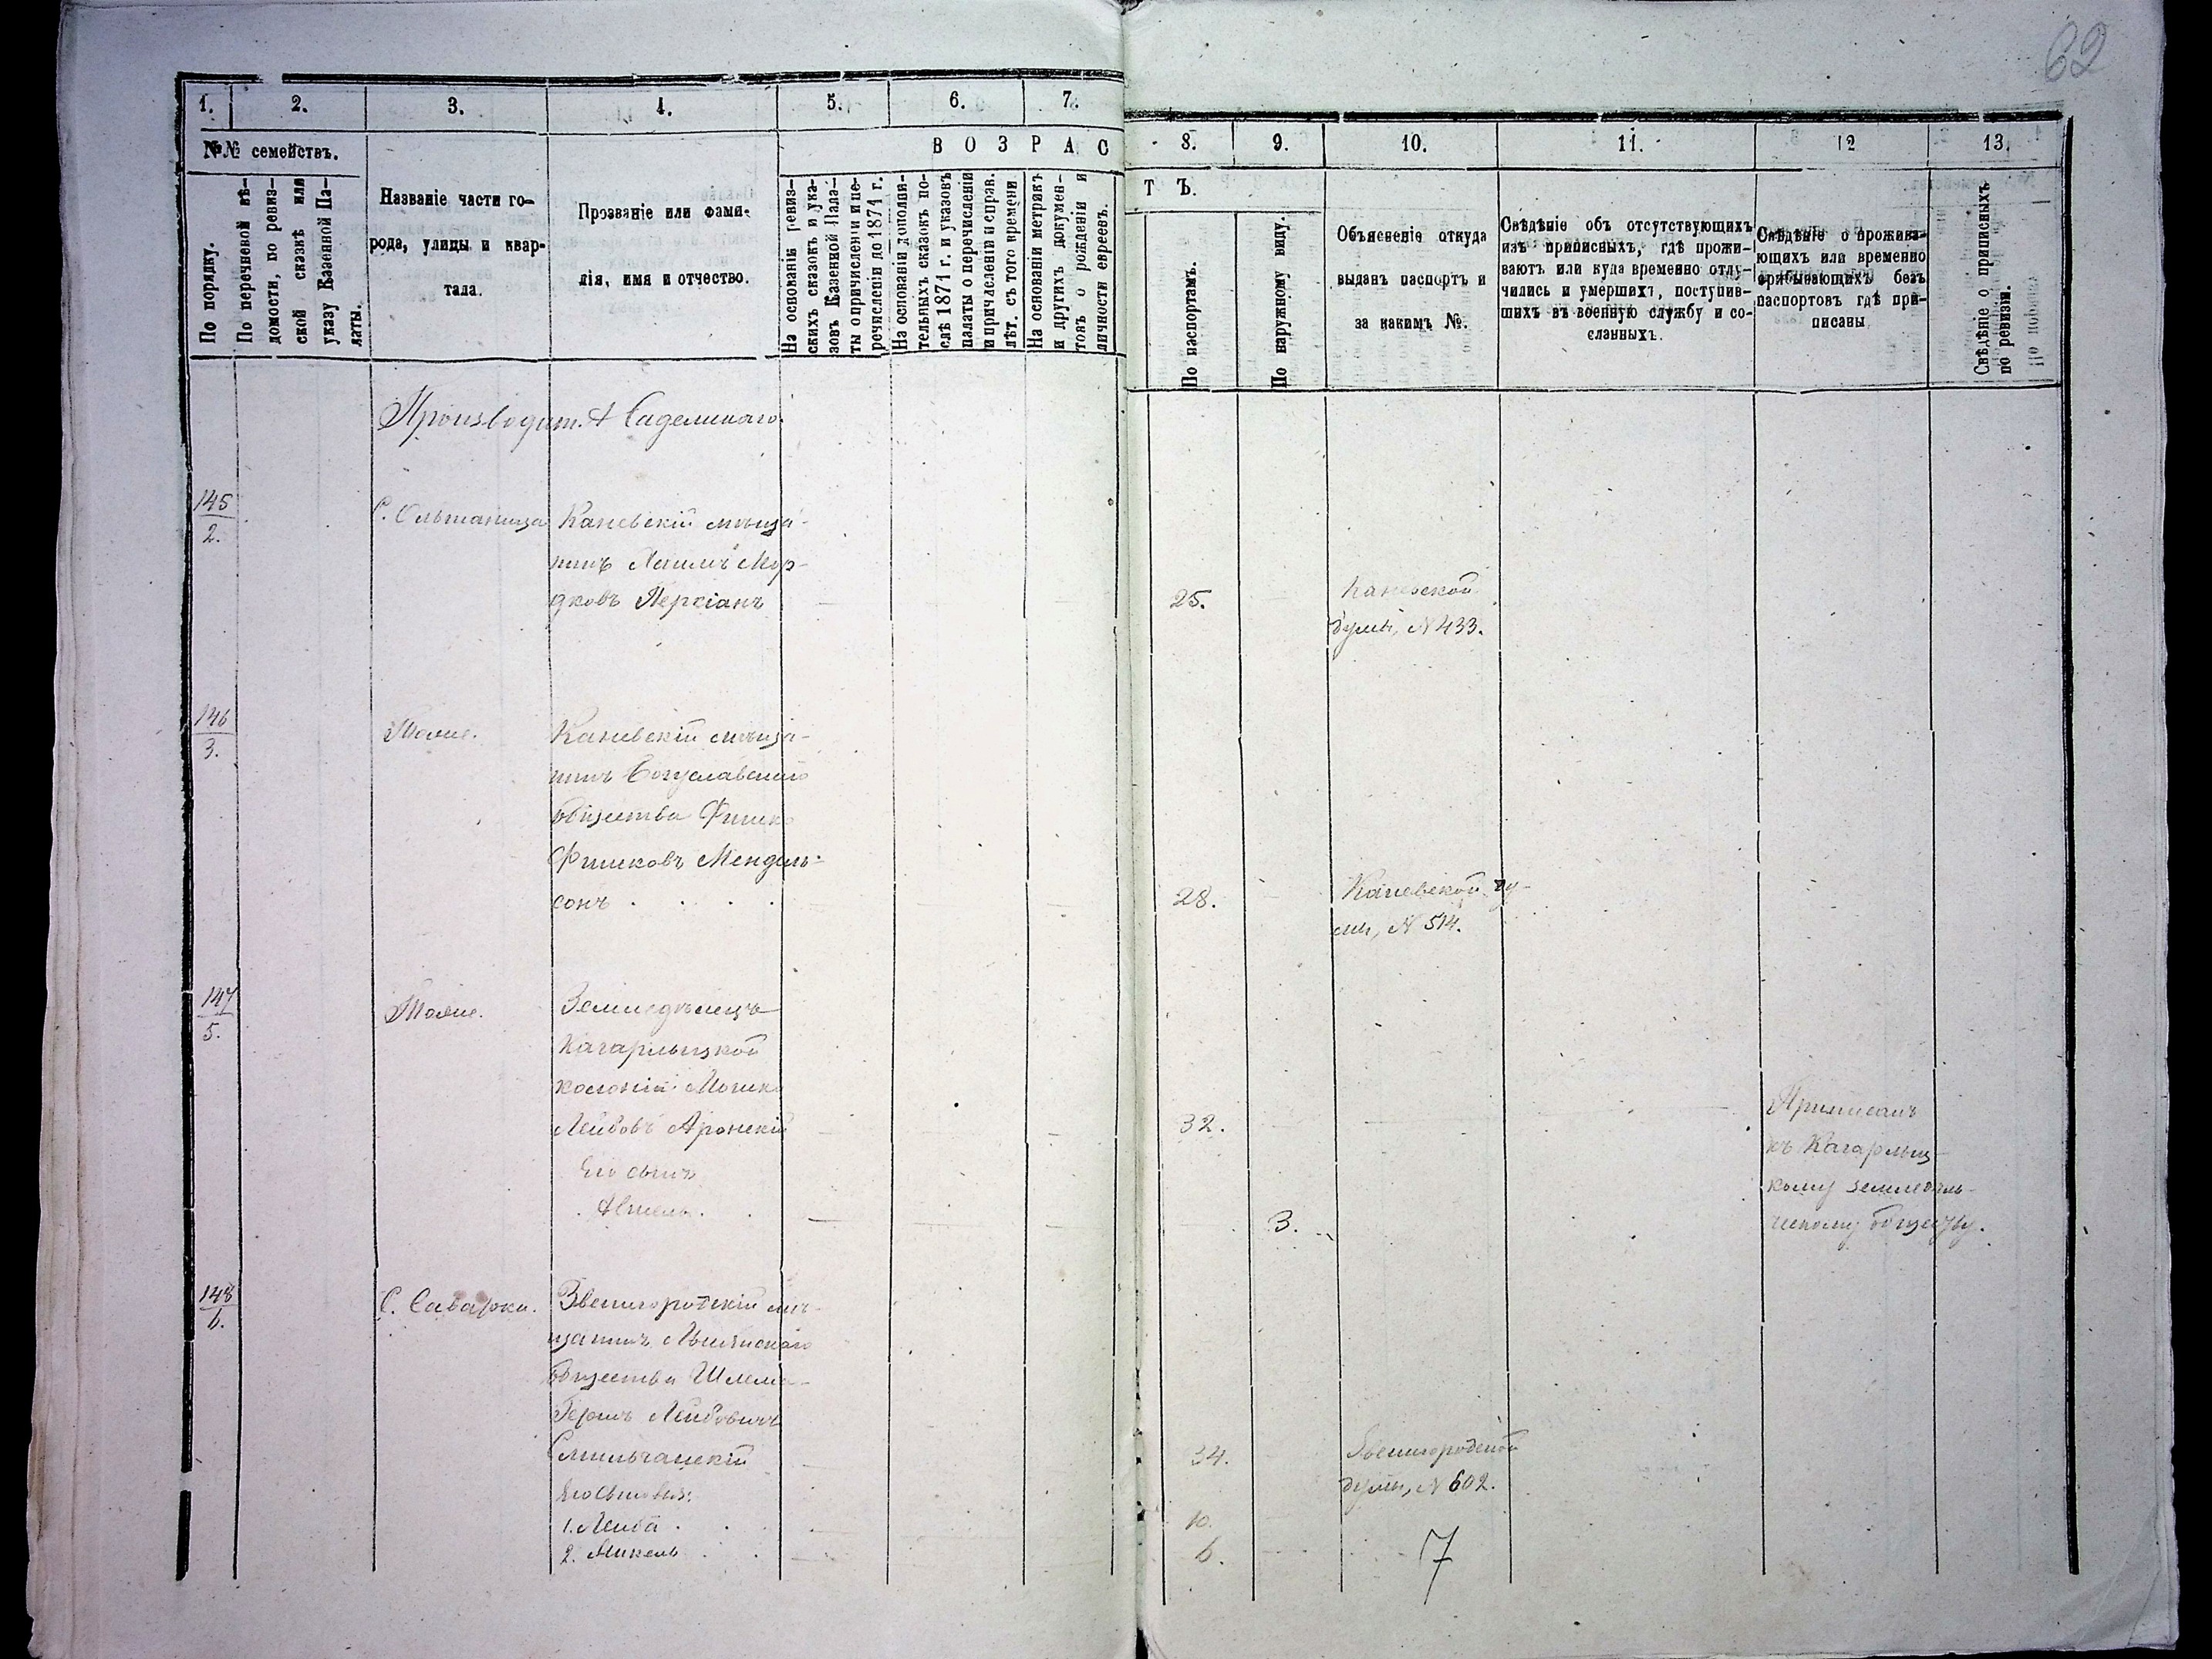 62
1. 2. 3. 4. 5. 6. 7.
8. 9. 10. 11. 12 13.
№№ семействъ.
По порядку.
По перечневой вѣ-
домости, по ревиз-
ской сказкѣ или
указу Казенной Па-
латы.
Названіе части го-
рода, улицы и квар-
тала.
Прозваніе или фами-
лія, имя и отчество.
В О З Р А С
Т Ъ.
На основаніи ревиз-
скихъ сказокъ и ука-
зовъ Казенной Пала-
ты о причислени и пе-
речислении до 1871 г.
На основаніи дополни-
тельныхъ сказокъ по-
слѣ 1871 г. и указовъ
палаты о перечислении
и причислении и справ.
лѣт. съ того времени
На основаніи метрикъ
и другихъ докумен-
товъ о рожденіи и
личности евреевъ.
По паспортамъ.
По наружному виду.
Объясненіе откуда
выданъ паспортъ и
за какимъ №.
Свѣдѣніе объ отсутствующихъ
изъ приписныхъ, гдѣ прожи-
ваютъ или куда временно отлу-
чились и умершихъ, поступив-
шихъ въ военную службу и со-
сланныхъ.
Свѣдѣніе о прожива-
ющихъ или временно
прибывающихъ безъ
паспортовъ гдѣ при-
писаны
Свѣдѣніе о приписныхъ
по ревизіи.
Производит. А
145
2.
С. Ольшаница
Каневскій мѣща-
нинъ Хаимъ Мор-
дковъ Персіанъ
25.
Каневской
думы, N 433.
146
3.
Тоже.
Каневскій мѣща-
нинъ Богуславскаго
общества Фишко
Фишковъ Мендель-
сонъ
28.
Каневской ду-
мы, N 514.
147
5.
Тоже.
Земледѣлецъ
Кагарлыцкой
колоніи Мошко
Лейбовъ Аронскій
32.
Его сынъ
3.
Приписанъ
къ Кагарлыц-
кому земледѣль-
ческому обществу.
148
6.
С. Саварка.
Звенигородскій мѣ-
щанинъ Лысянскаго
общества Шлема-
Гершъ Лейбовичъ
Смильчанскій
34.
Звенигородской
думы, N 602.
Его сыновья:
1. Лейба
10.
2. Микель
6.
7